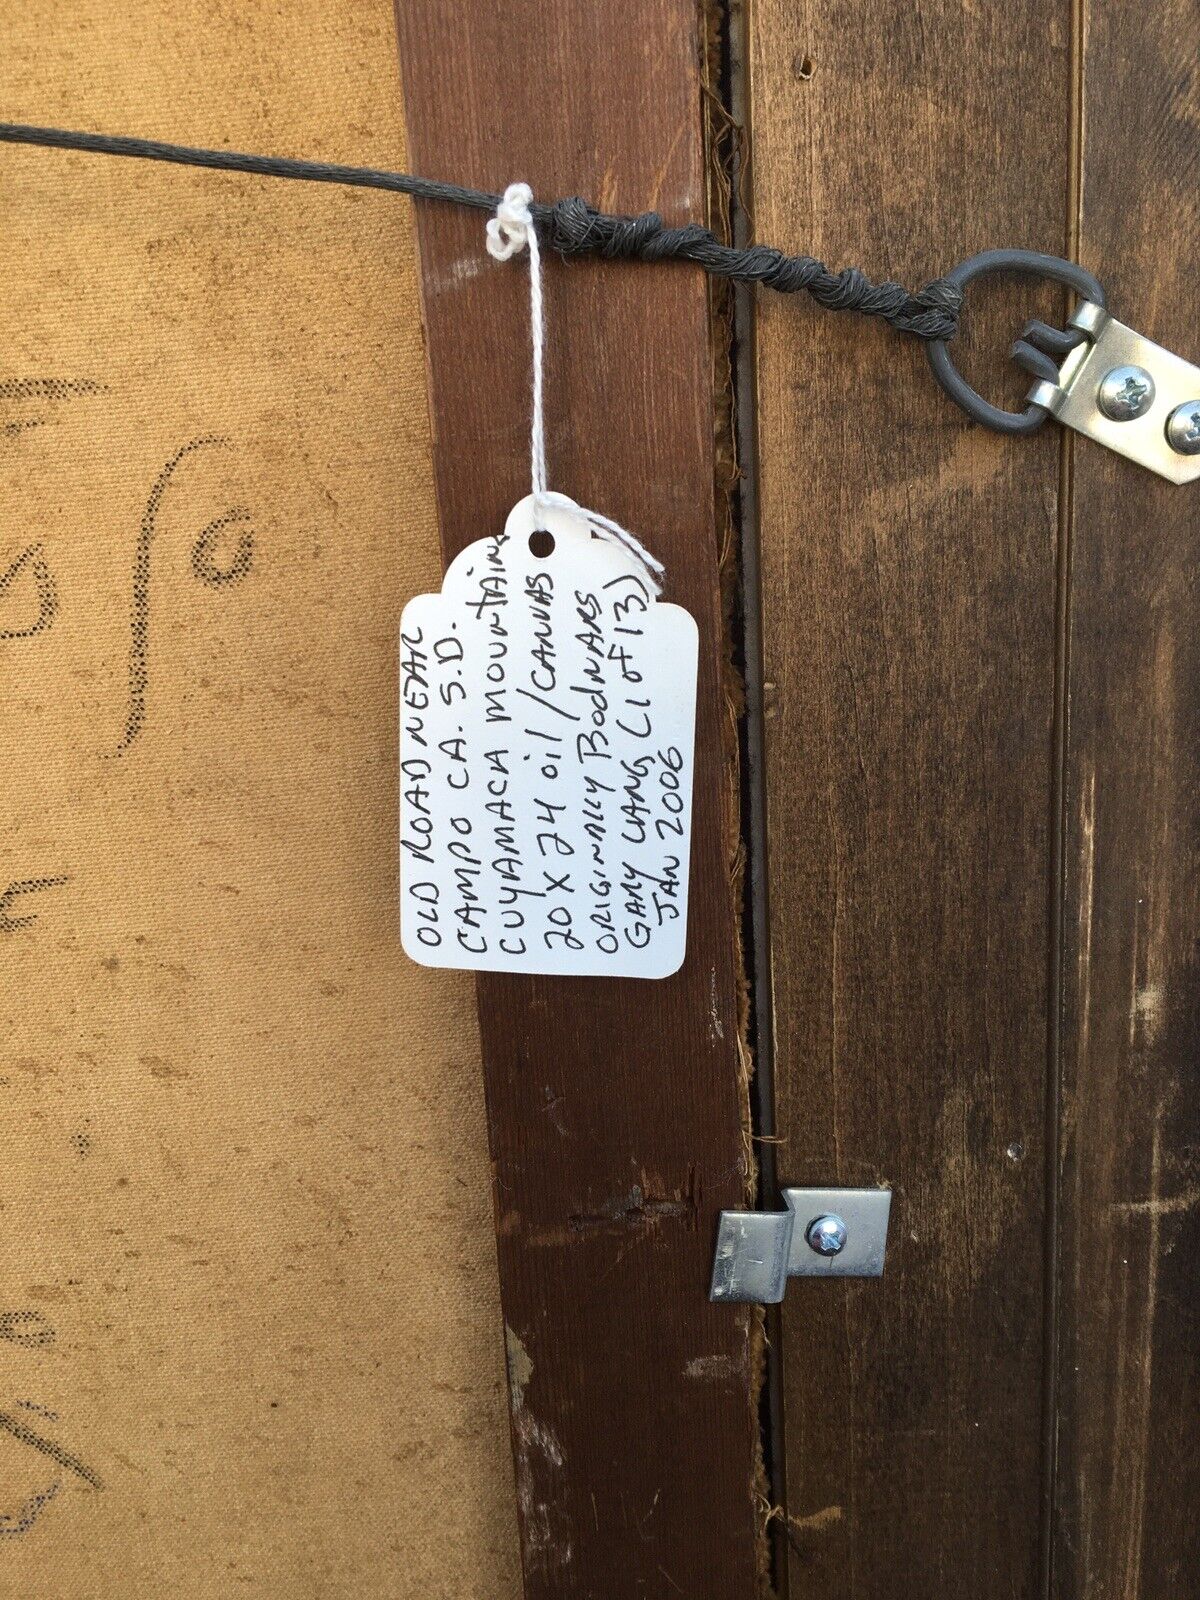 OLD ROAD NEAR
CAMPO CA. S.D.
CUYAMACA MOUNTAINS
20 X 24 oil / CANVAS
ORIGINALLY BODNARS
GARY LANG (1 of 13)
JAN 2006